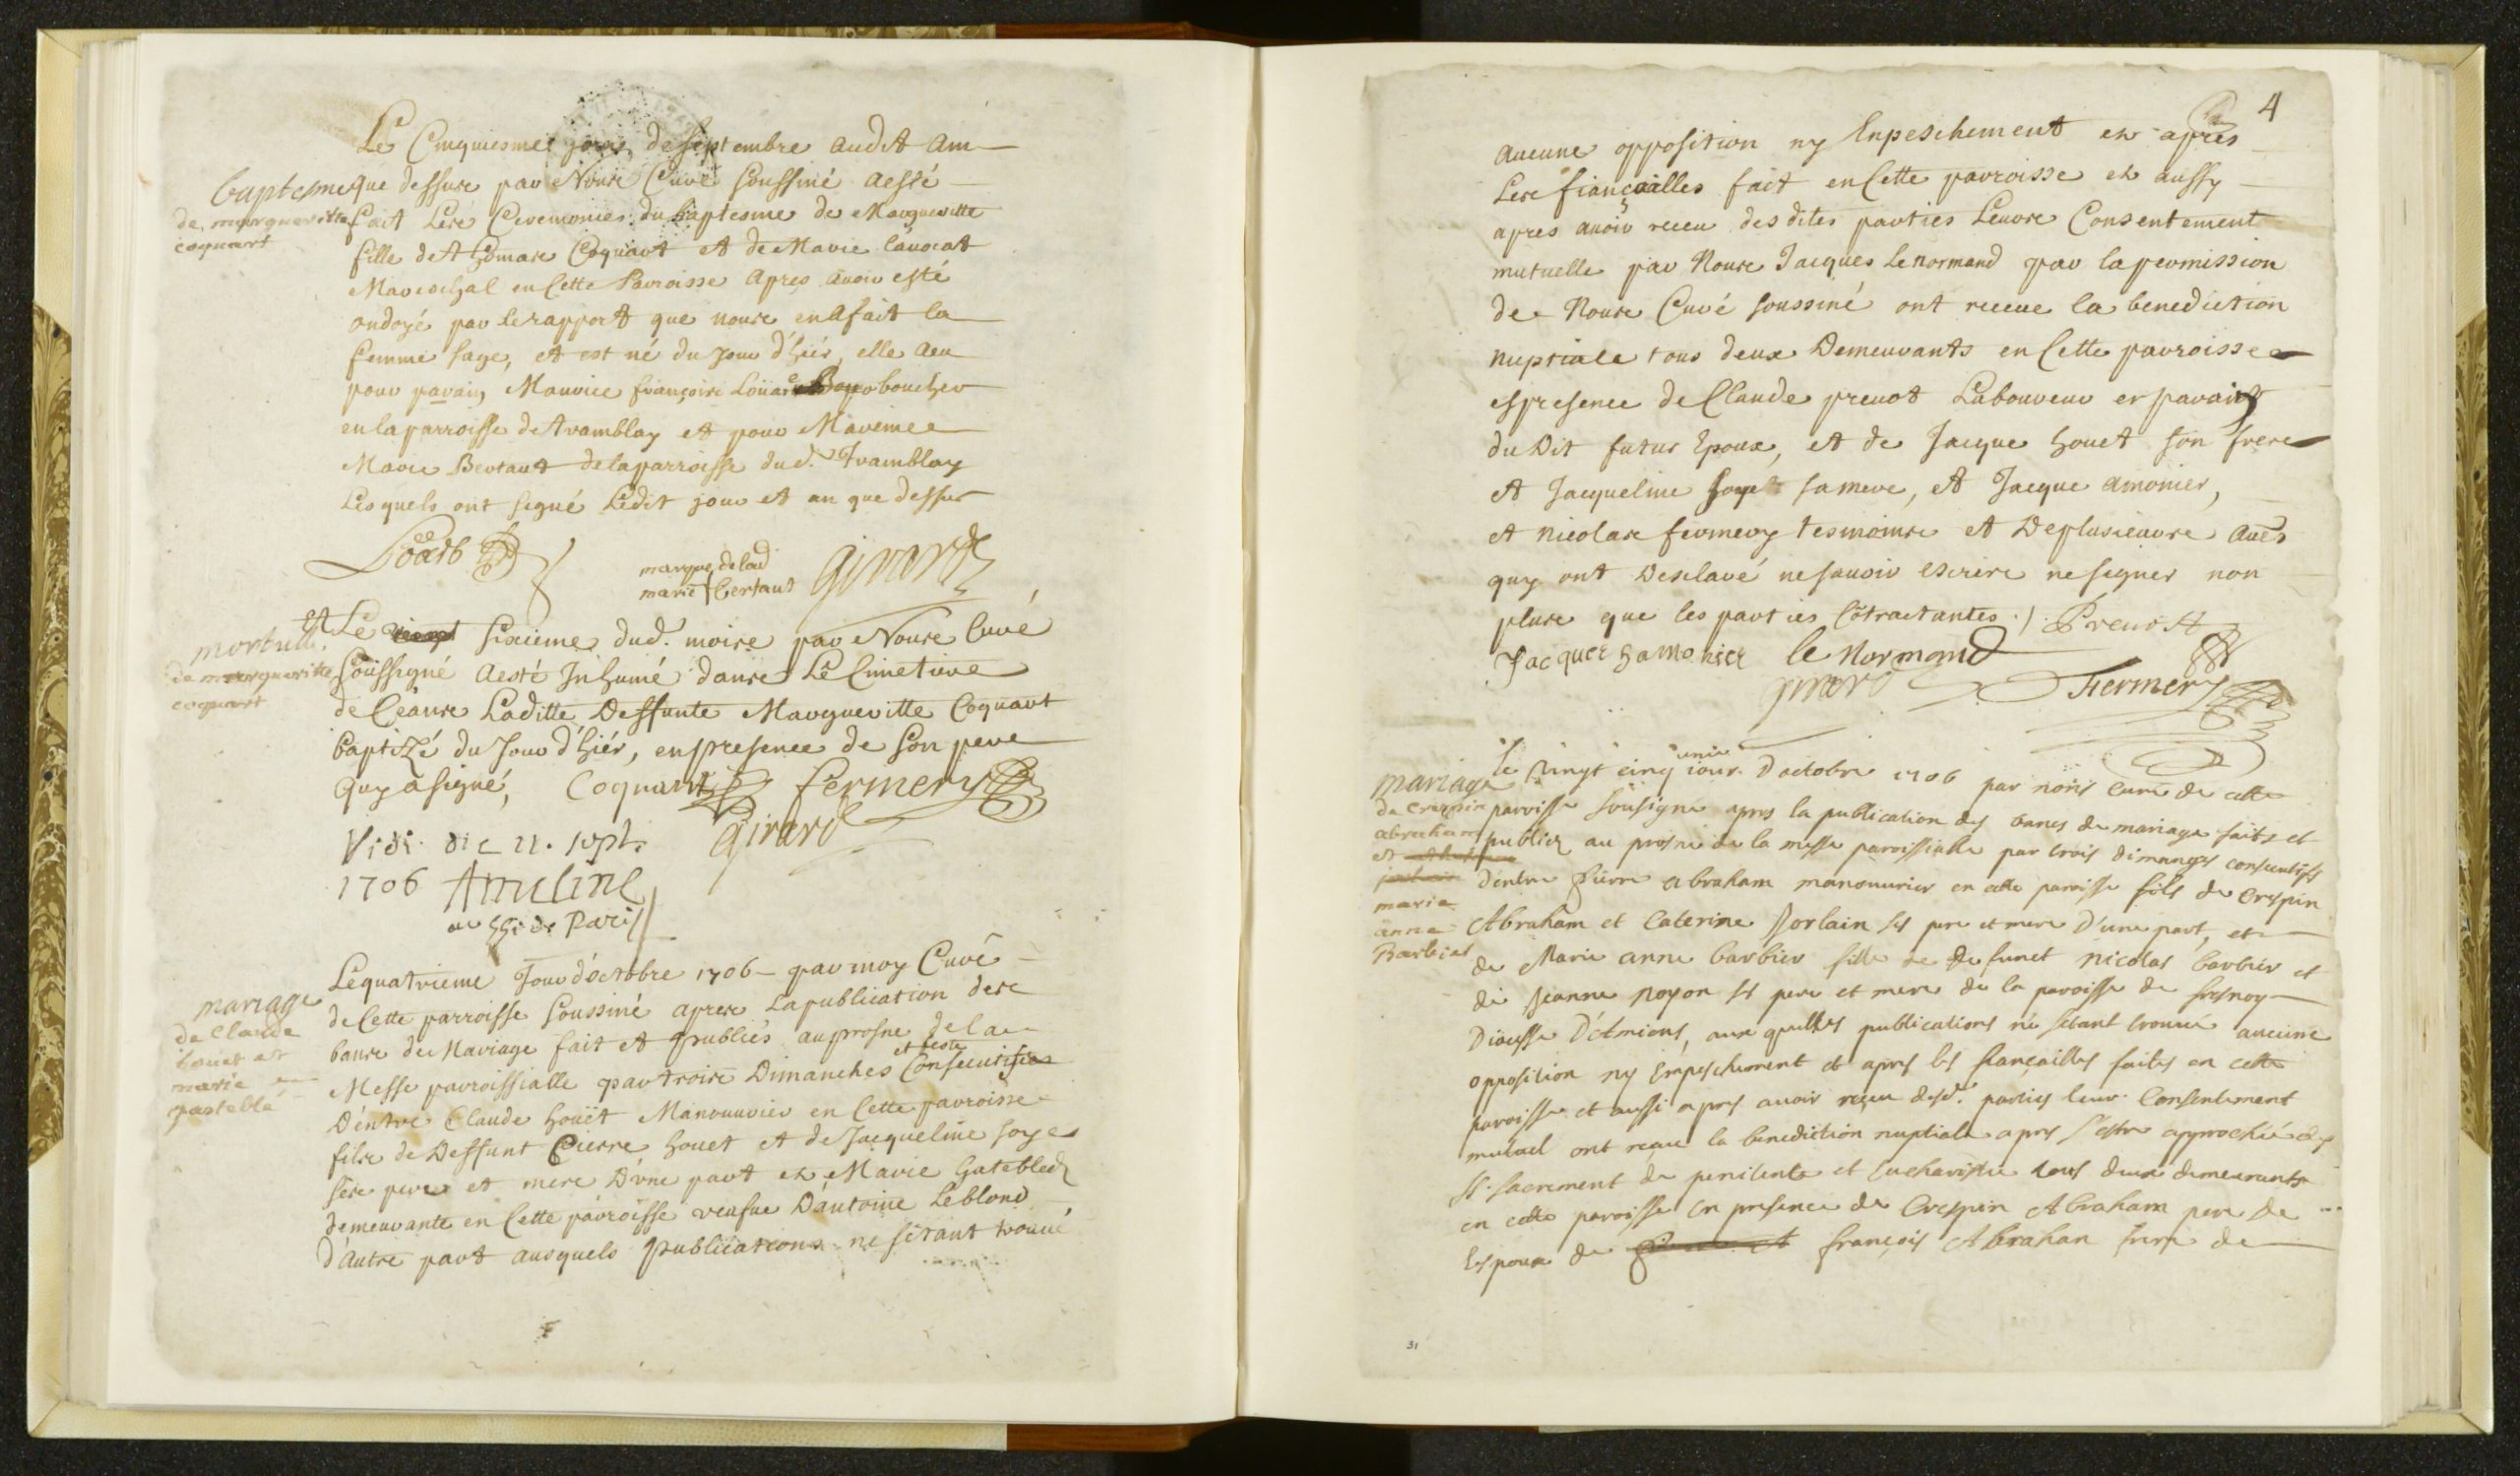 baptesme
de margueritte
coquart
Le Cinquiesme jour de septembre audit an
que dessus par Nous Curé soussiné a esté
fait Les Ceremonies du baptesme de Margueritte
fille de Thomas Coquart et de Marie lauocat
Mareschal en Cette Parroisse Apres auoir esté
ondoyé par le rapport que nous en a fait la
femme sage, et est né du Jour d'hiér, elle a eu
pour parain Maurice françois Loüard boucher
en la parroisse de tramblay et pour Mareine
Marie Bertaut de la parroisse dud. Tramblay
Lesquels ont signé Ledit jour et an que dessus
marque de lad
marie + Bertaut
Girard
mortuaire
de margueritte
coquart
et Le sixieme dud. mois par Nous Curé
Soussigné a esté Inhumé dans Le Cimetiere
de Céans Laditte Deffunte Margueritte Coquart
baptizé du Jour d'hiér, en presence de son pere
quy a signé, Coquart fermery
Girard
Vidi die 11. sept.
1706 Ameline
de Paris
mariage
de Claude
houet et
marie
gastebled
Le quatrieme Jour d'octobre 1706 par moy Curé
de Cette parroisse soussiné apres La publication des
bans de Mariage fait et publiés au prosne de la
Messe parroissialle par trois Dimanches et feste Consecutifs
D'éntre Claude houët Manouuvier en Cette parroisse
fils de Deffunt Pierre houet et de Jacqueline soyes
ses pere et mere D'une part et Marie Gatebled
demeurante en Cette parroisse veufue D'antoine Leblond
d'autre part ausquels publications ne s'étant trouué
4
aucune opposition ny Enpeschement et apres
Les fiançailles fait en Cette parroisse et aussy
apres auoir receu des dites parties Leurs Consentement
mutuelle par Nous Jacques Lenormand par la permission
de Nous Curé soussiné ont receue la benediction
nuptiale tous deux Demeurants en Cette parroisse
espresence de Claude preuot Laboureur et parain
du Dit futur Epoux, et de Jacque houet son frere
et Jacqueline soyes sa mere, et Jacque amonier,
et nicolas fermery tesmoins et De plusieurs autres
quy ont Desclaré ne sauoir escrire ne signer non
plus que les parties Côtractantes. Preuost
Jacques hamonier le Normand
Girard Fermery
mariage
de Crespin
abraham
et
marie
anne
Barbier
le vingt cinq unie jour d'octobre 1706 par nous curé de cette
paroisse sousigné apres la publication des bancs de mariage faits et
publiez au prosne de la messe paroissialle par trois dimanges consecutifs
d'entre Pierre abraham manouurier en cette paroisse fils de Crespin
Abraham et Caterine Jorlain ses pere et mere D'une part, et
de Marie anne barbier fille de defunct Nicolas barbier et
de Jeanne Noyon ses pere et mere de la paroisse de fresnoy
Diocesse D'Amiens, aux quelles publications ne sétant trouué aucune
opposition ny Empeschement et apres les fiançailles faites en cette
paroisse et aussi apres auoir reçeu desd. parties leur Consentement
mutuel ont reçeu la benediction nuptiale apres s'estre approchés des
SS. sacrement de penitente et Eucharistie tous deux demeurants
en cette paroisse En presence de Crespin Abraham pere de
Espoux de françois Abrahan frere de
31